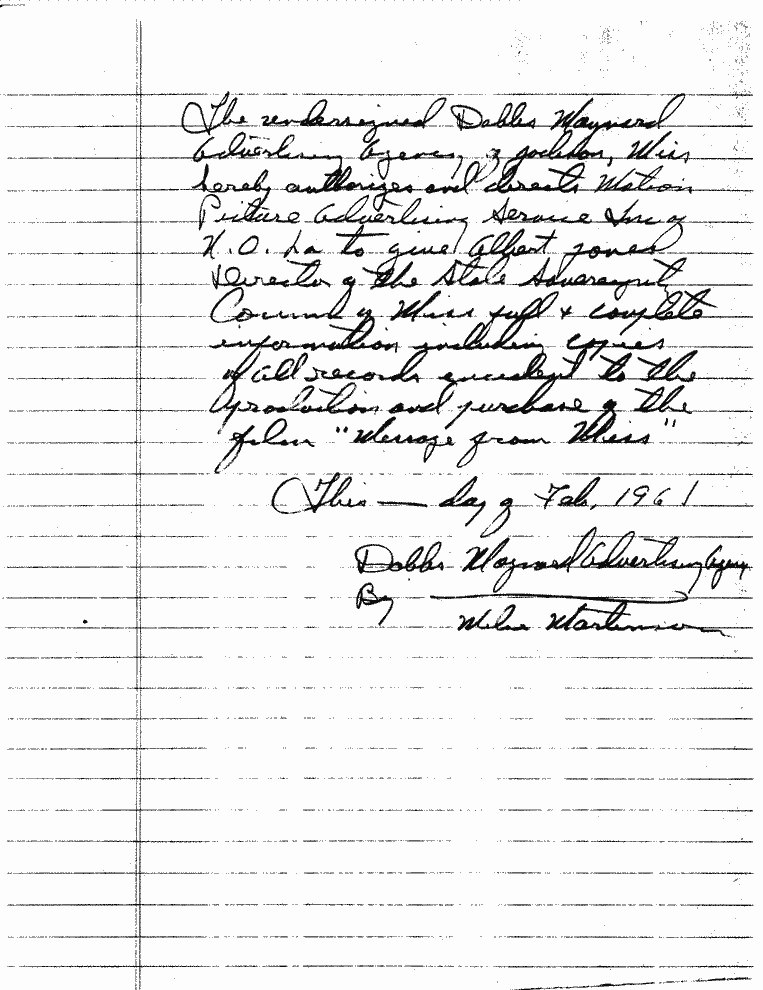 The undersigned Dobbs Maynard
Advertising Agency, of Jackson, Miss
hereby authorizes and directs Motion
Picture Advertising Service Inc of
N.O. La to give Albert Jones
Director of the State Sovereignty
Council of Miss full & complete
information including copies
of all records incident to the
production and purchase of the
film "Message from Miss"
This — day of Feb, 1961
Dobbs Maynard Advertising Agency
By
Martinson